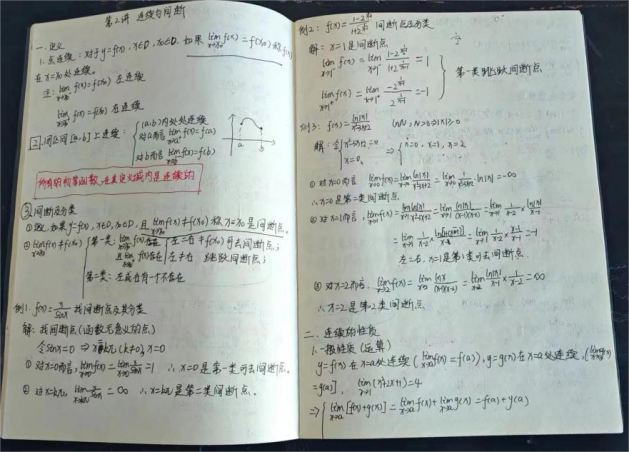 第2讲 连续与间断
一、定义
1.点连续:对于y=f(x), x∈D, x₀∈D. 如果 lim x→x₀ f(x)=f(x₀) 称f(x)
在x=x₀处连续。
注: lim f(x)=f(x₀) 左连续
lim f(x)=f(x₀) 右连续
2.闭区间[a,b]上连续: (a,b)内处处连续
对a而言 lim f(x)=f(a)
对b而言 lim f(x)=f(b)
a b
所有的初等函数,在其定义域内是连续的
③间断及分类
①设 如果y=f(x), x∈D, x₀∈D, 且 lim x→x₀ f(x)≠f(x₀) 称x=x₀是间断点。
② lim f(x)≠f(x₀) 第一类: lim f(x)存在 左=右≠f(x₀) 可去间断点;
且 lim f(x)存在 左≠右 跳跃间断点;
第二类:左或右有一个不存在
例1. f(x)=x/sinx 找间断点及其分类
解: 找间断点(函数无意义的点)
令sinx=0 ⇒ x=kπ(k≠0), x=0
① 对x=0而言, lim x→0 f(x)=lim x→0 x/sinx=1 ∴x=0是第一类可去间断点。
② 对x=kπ, lim x→kπ x/sinx=∞ ∴x=kπ是第二类间断点。
例2: f(x)= 间断点及分类
解: x=1是间断点
lim x→1⁻ f(x)=lim x→1⁻ =1
lim x→1⁺ f(x)=lim x→1⁺ =-1
第一类跳跃间断点
例3: f(x)=ln|x|/(x²-3x+2)
解: 令 x²-3x+2=0
x=0
⇒ x=0, x=1, x=2
① 对x=0而言 lim x→0 f(x)=lim x→0 ln|x|/(x²-3x+2)=lim x→0 1/(x²-3x+2)·ln|x|=-∞
∴x=0是第二类间断点
② 对x=1而言, lim x→1 f(x)=lim x→1 ln|x|/(x²-3x+2)=lim x→1 ln|x|/((x-1)(x-2))=lim x→1 1/(x-2)×ln|x|/(x-1)
=-1
左=右, x=1是第1类可去间断点
③ 对x=2而言, lim x→2 f(x)=lim x→2 lnx/((x-1)(x-2))=lim x→2 ln|x|/(x-1)×1/(x-2)=∞
∴x=2是第2类间断点
二、连续的性质
1.一般性质(运算)
y=f(x)在x=a处连续(lim x→a f(x)=f(a)), y=g(x)在x=a处连续,
=g(a)], lim x→1 (x²+2x+1)=4
⇒ lim x→a [f(x)+g(x)]=lim x→a f(x)+lim x→a g(x)=f(a)+g(a)